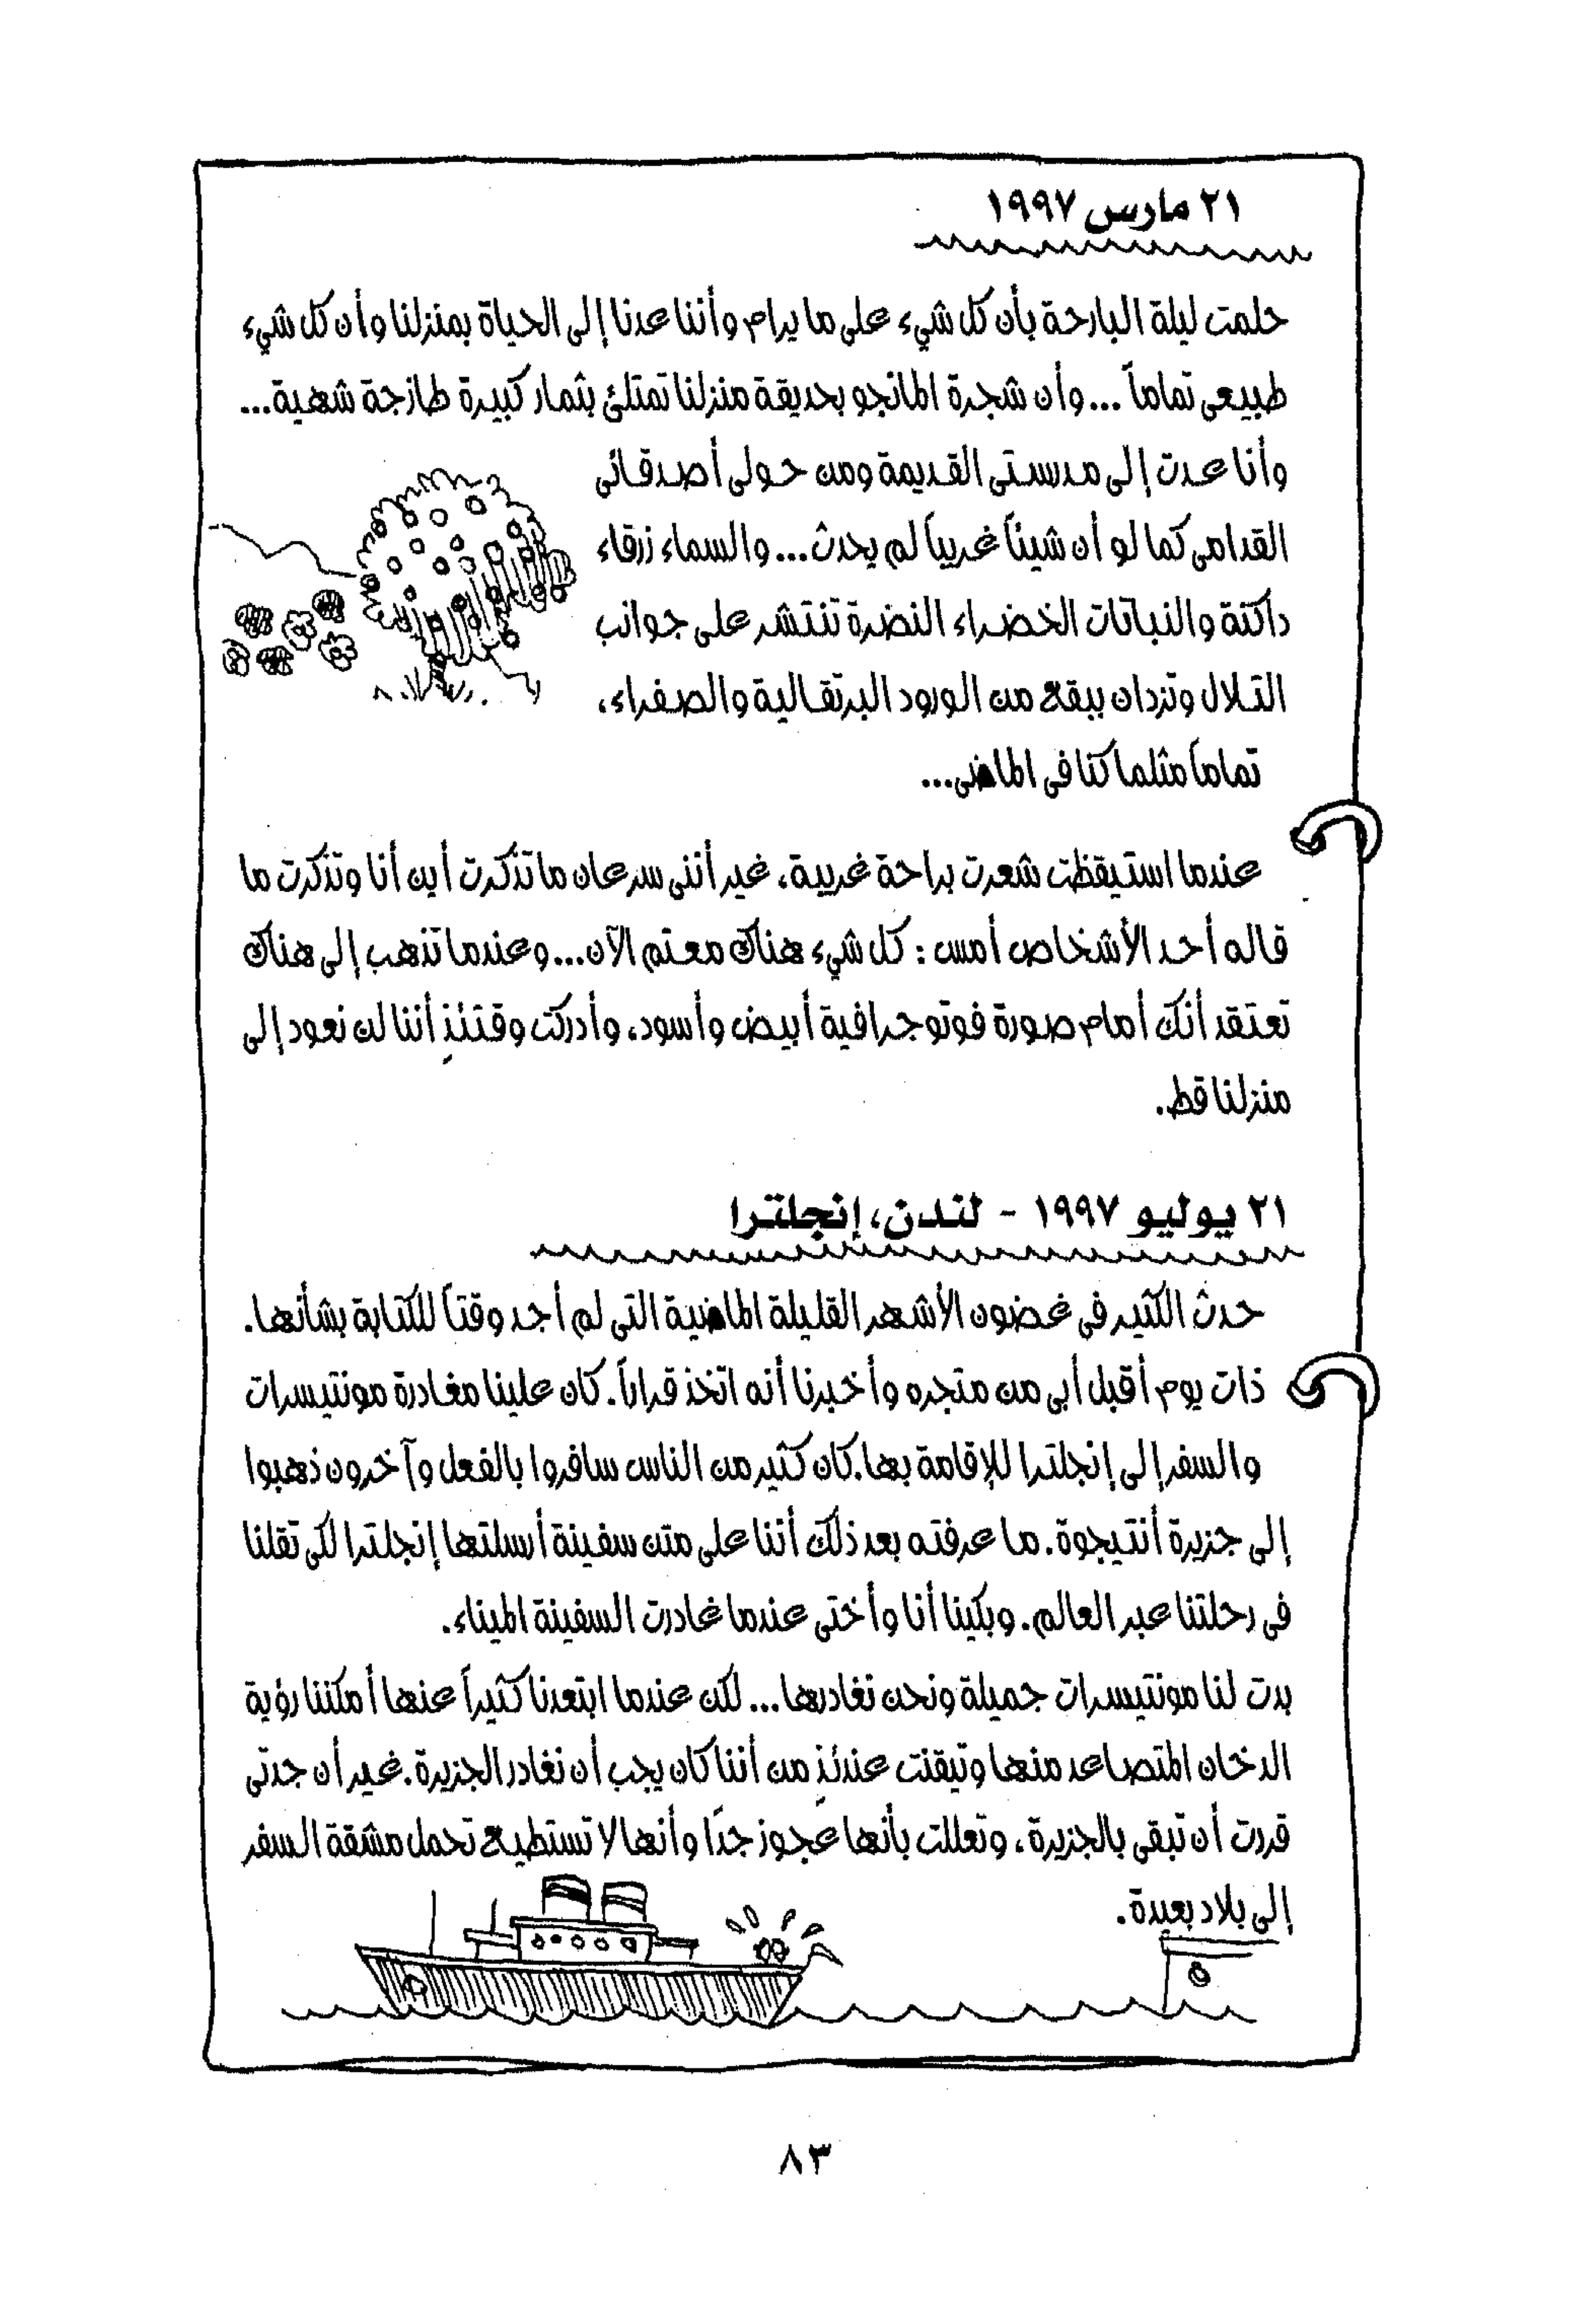 ٢١ مارس ١٩٩٧
حلمت ليلة البارحة بأن كل شيء على ما يرام وأننا عدنا إلى الحياة بمنزلنا وأن كل شيء
طبيعى تماماً ... وأن شجرة المانجو بحديقة منزلنا تمتلئ بثمار كبيرة طازجة شهية...
وأنا عدت إلى مدرستى القديمة ومن حولى أصدقائى
القدامى كما لو أن شيئاً غريباً لم يحدث... والسماء زرقاء
داكنة والنباتات الخضراء النضرة تنتشر على جوانب
التلال وتزدان ببقع من الورود البرتقالية والصفراء،
تماماً مثلما كنا فى الماضى...
عندما استيقظت شعرت براحة غريبة، غير أننى سرعان ما تذكرت أين أنا وتذكرت ما
قاله أحد الأشخاص أمس : كل شيء هناك معتم الآن... وعندما تذهب إلى هناك
تعتقد أنك أمام صورة فوتوجرافية أبيض وأسود، وأدركت وقتئذٍ أننا لن نعود إلى
منزلنا قط.
٢١ يوليو ١٩٩٧ - لندن، إنجلترا
حدث الكثير فى غضون الأشهر القليلة الماضية التى لم أجد وقتاً للكتابة بشأنها.
ذات يوم أقبل أبى من متجره وأخبرنا أنه اتخذ قراراً. كان علينا مغادرة مونتيسرات
والسفر إلى إنجلترا للإقامة بها. كان كثير من الناس سافروا بالفعل وآخرون ذهبوا
إلى جزيرة أنتيجوة. ما عرفته بعد ذلك أننا على متن سفينة أرسلتها إنجلترا لكى تقلنا
فى رحلتنا عبر العالم. وبكينا أنا وأختى عندما غادرت السفينة الميناء.
بدت لنا مونتيسرات جميلة ونحن نغادرها... لكن عندما ابتعدنا كثيراً عنها أمكننا رؤية
الدخان المتصاعد منها وتيقنت عندئذٍ من أننا كان يجب أن نغادر الجزيرة. غير أن جدتى
قررت أن تبقى بالجزيرة، وتعللت بأنها عجوز جدًا وأنها لا تستطيع تحمل مشقة السفر
إلى بلاد بعيدة.
٨٣